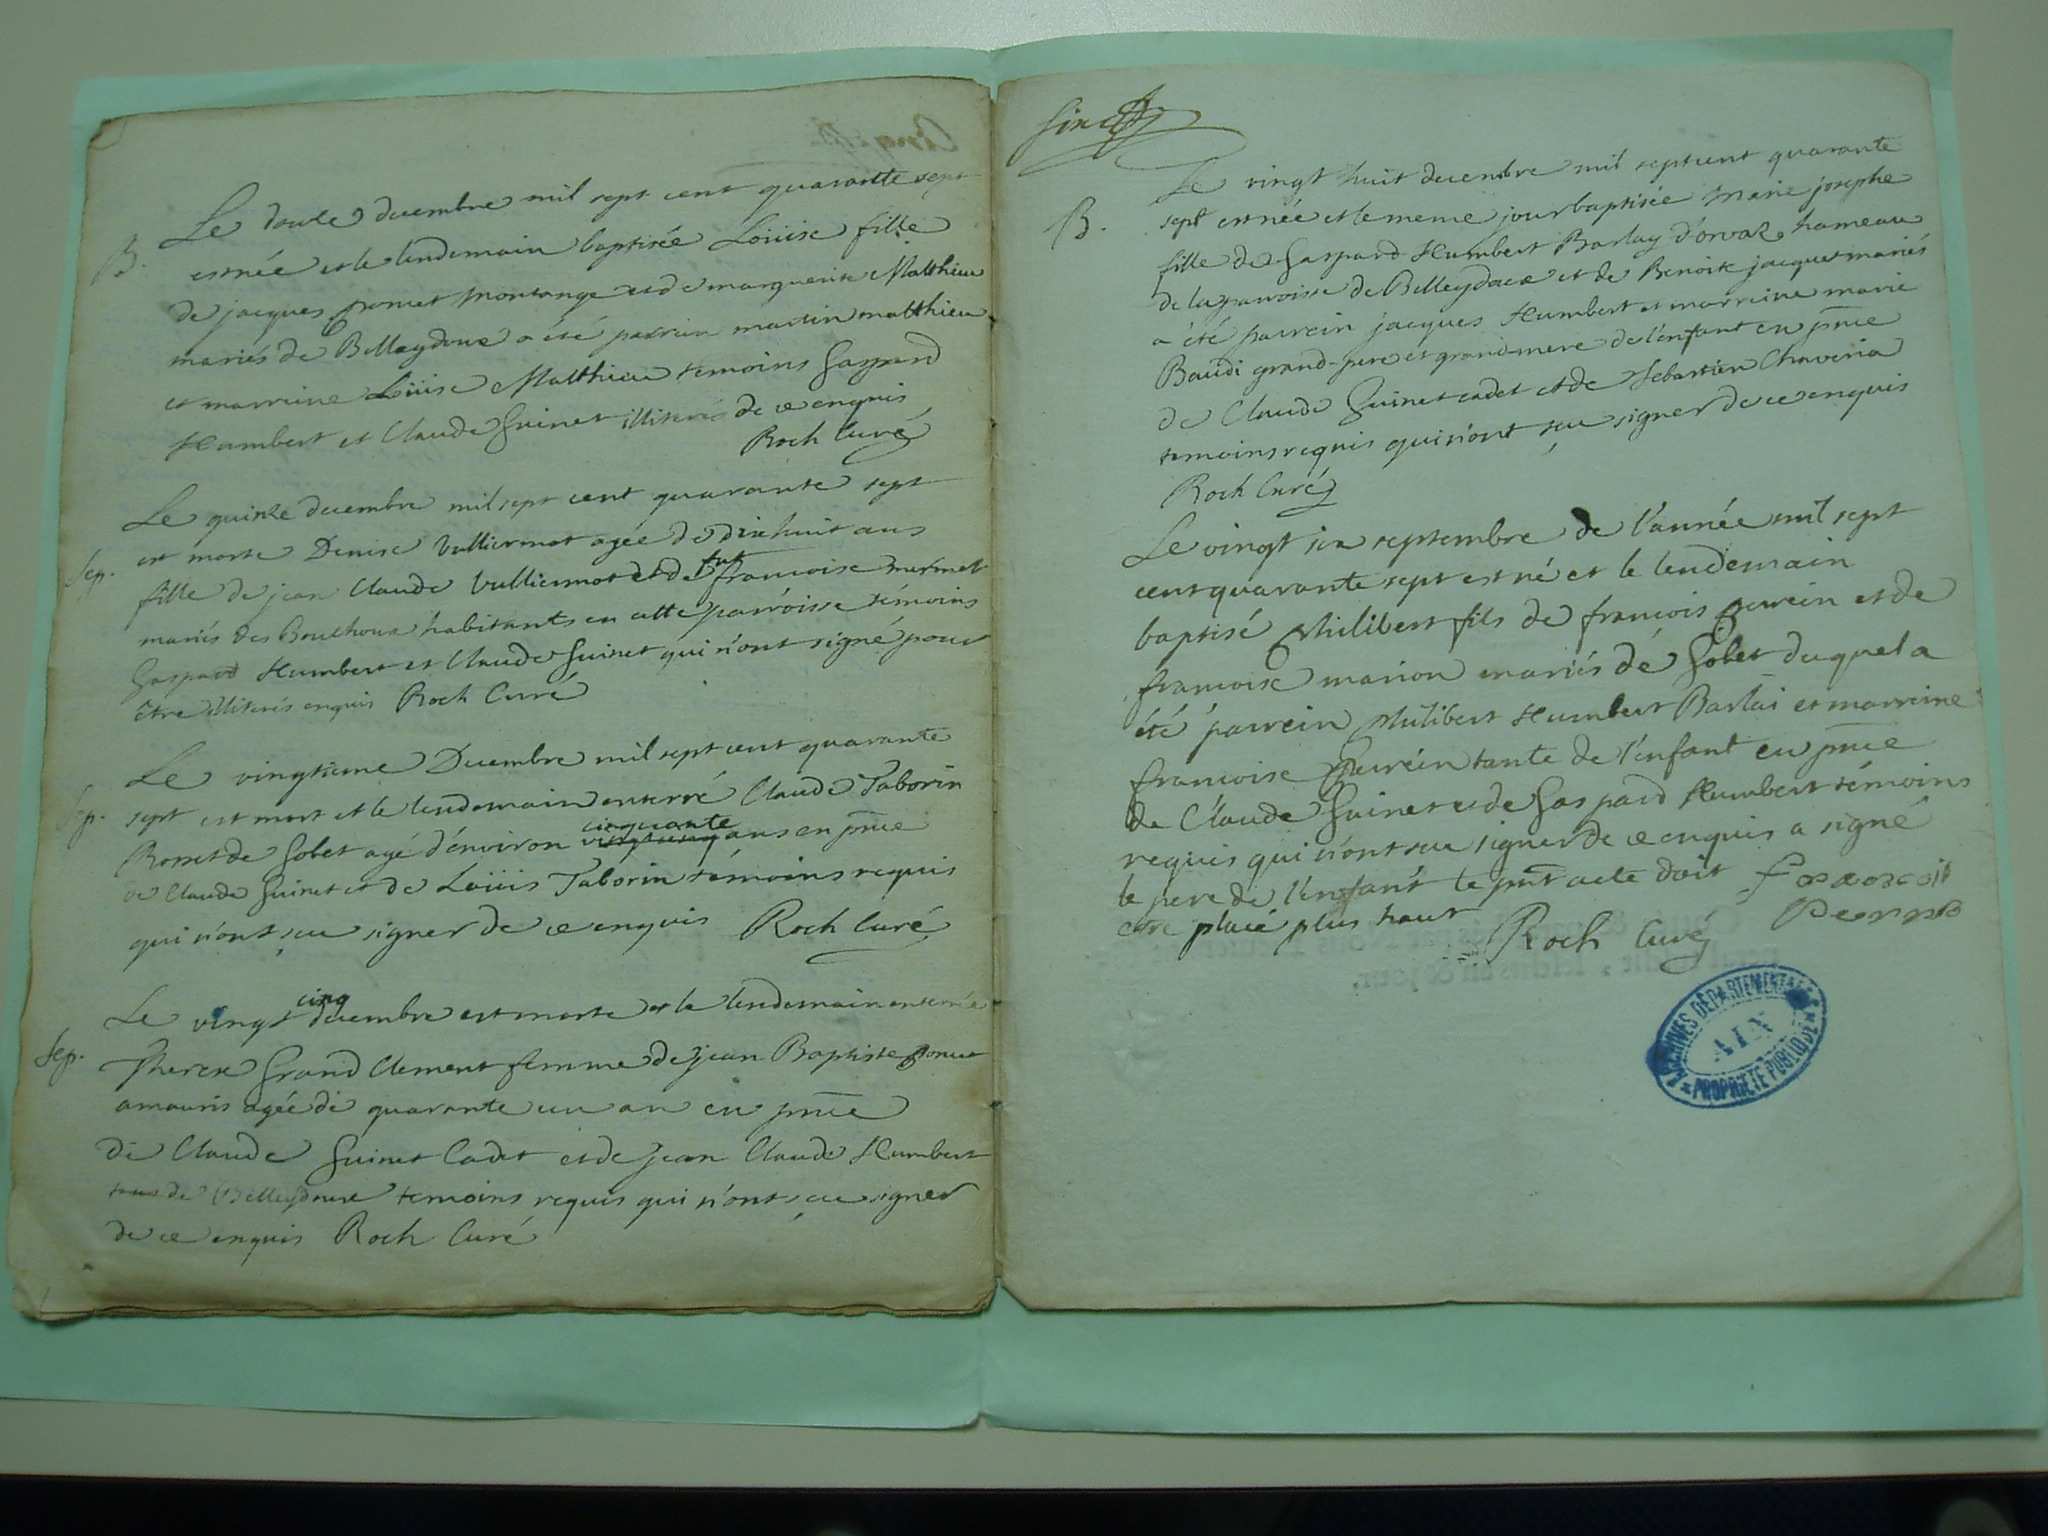 B.
Le douze decembre mil sept cent quarante sept
est née et le lendemain baptisée Loüise fille
de jacques poncet montange et de marguerite Matthieu
mariés de Belleydoux a été parrein martin matthieu
et marreine Loüise Matthieu temoins Gaspard
Humbert et Claude Guinet illiterés de ce enquis
Roch Curé
Sep.
Le quinze decembre mil sept cent quarante sept
est morte Denise Vuillermoz agée de dixhuit ans
fille de jean Claude Vuillermoz et de
françoise mermet
mariés des Bouchoux habitants en cette parroisse témoins
Gaspard Humbert et Claude Guinet qui n'ont signé pour
être illiterés enquis Roch Curé
Sep.
Le vingtieme Decembre mil sept cent quarante
sept est mort et le lendemain enterré Claude Taborin
Rosset de Gobet agé d'environ cinquante ans en pñce
de Claude Guinet et de Loüis Taborin témoins requis
qui n'ont sçu signer de ce enquis Roch Curé
Sep.
Le vingt cinq decembre est morte et le lendemain enterrée
Therese Grand Clement femme de jean Baptiste poncet
amauris agée de quarante un an en pñce
de Claude Guinet Cadet et de jean Claude Humbert
tous de Belleydoux temoins requis qui n'ont sçu signer
de ce enquis Roch Curé
six
B.
Le vingt huit decembre mil sept cent quarante
sept est née et le meme jour baptisée marie josephe
fille de Gaspard Humbert Barlay d'orvaz hameau
de la parroisse de Belleydoux et de Benoite jacquet mariés
a été parrein jacques Humbert et marreine marie
Baudi grand-pere et grand mere de l'enfant en pñce
de Claude Guinet cadet et de Sebastien Chaveria
temoins requis qui n'ont sçu signer de ce enquis
Roch Curé
Le vingt six septembre de l'année mil sept
cent quarante sept est né et le lendemain
baptisé philibert fils de françois perrein et de
françoise marion mariés de Gobet duquel a
été parrein philibert Humbert Barlai et marreine
françoise perrein tante de l'enfant en pñce
de Claude Guinet et de Gaspard Humbert témoins
requis qui n'ont sçu signer de ce enquis a signé
le pere de l'enfant le pñt acte doit
etre placé plus haut Roch Curé
ARCHIVES DÉPARTEMENTALES
AIN
PROPRIÉTÉ PUBLIQUE